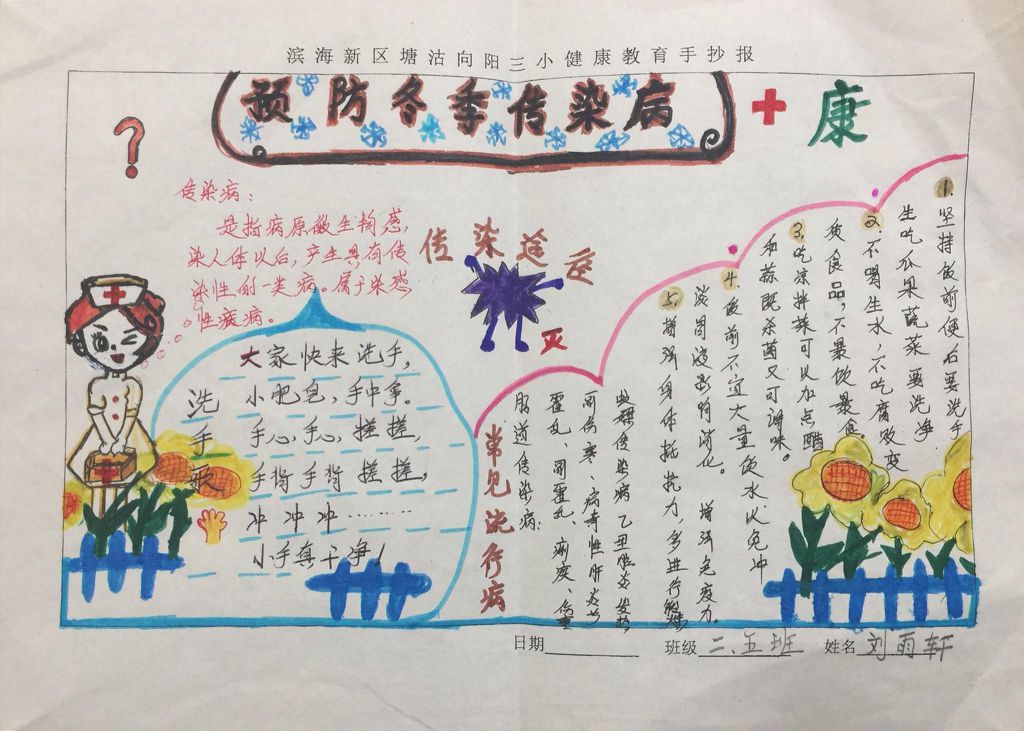 滨海新区塘沽向阳三小健康教育手抄报
预防冬季传染病
康
?
传染病:
是指病原微生物感,
染人体以后,产生具有传
染性的一类病。属于染感
性疲病。
传染途径
灭
洗手歌
大家快来洗手,
小肥皂,手中拿。
手心,手心,搓搓,
手背手背搓搓,
冲冲冲………
小手真干净!
常见流行病
肠道传染病:
霍乱、副霍乱、痢疾、伤寒
副伤寒、病毒性肝炎等
1.坚持饭前便后要洗手
生吃瓜果蔬菜要洗净
2.不喝生水,不吃腐败变
质食品,不暴饮暴食。
3.吃凉拌菜可以加点醋
和蒜既杀菌又可调味。
4.饭前不宜大量饮水以免冲
淡胃液影响消化。增强免疫力。
5.增强身体抵抗力,多进行锻炼,
日期
班级 二、五班
姓名 刘雨轩